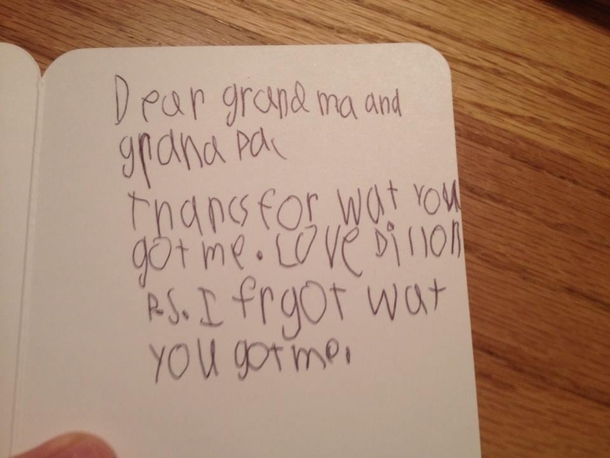 Dear grandma and
grandpa
thancs for wat you
got me. Love Dillon
P.S. I frgot wat
you got me.